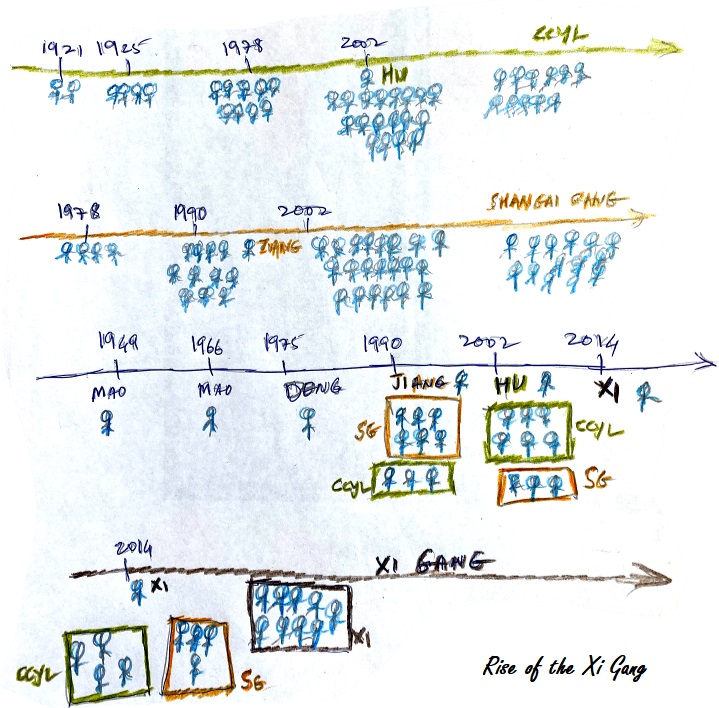 1921 1925 1978 2002 CCYL
HU
1978 1990 2002 SHANGAI GANG
ZIANG
1949 1966 1975 1990 2002 2014
MAO MAO DENG JIANG HU XI
SG CCYL
CCYL SG
2014 XI GANG
XI
XI
CCYL SG
Rise of the Xi Gang